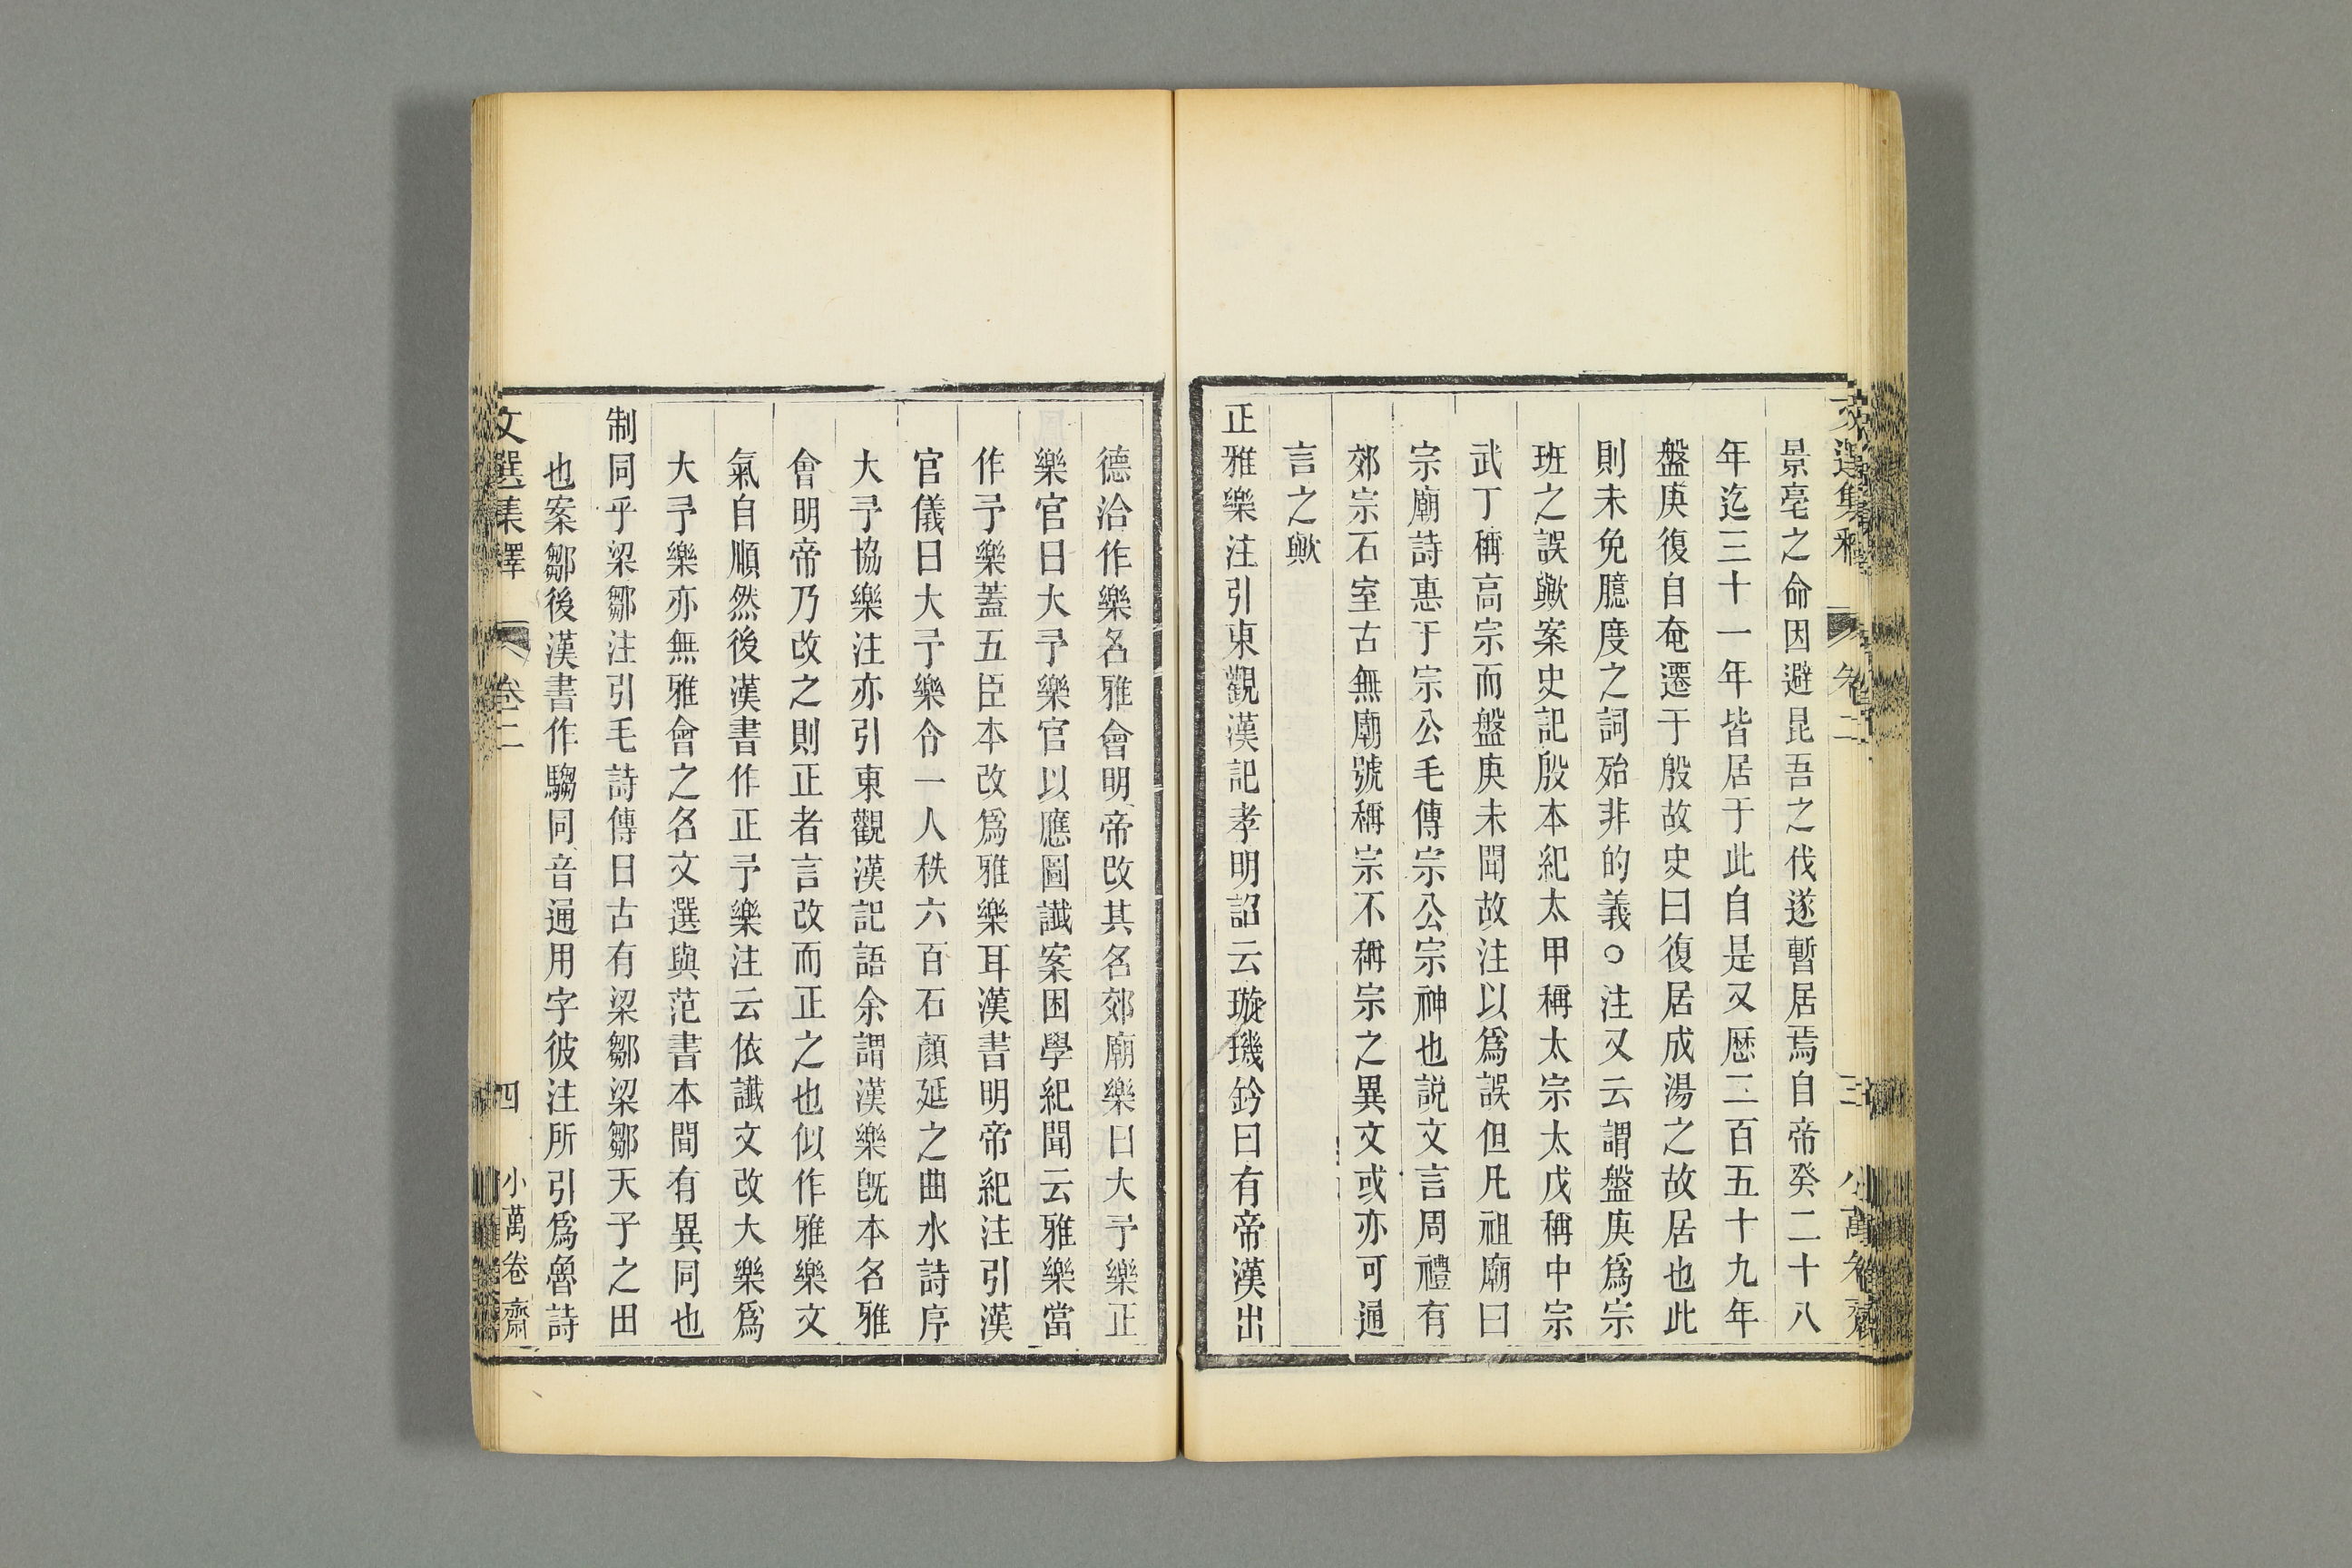 文選集釋 卷二 三 小萬卷齋
景亳之命因避昆吾之伐遂暫居焉自帝癸二十八
年迄三十一年皆居于此自是又歷二百五十九年
盤庚復自奄遷于殷故史曰復居成湯之故居也此
則未免臆度之詞殆非的義○注又云謂盤庚爲宗
班之誤歟案史記殷本紀太甲稱太宗太戊稱中宗
武丁稱高宗而盤庚未聞故注以爲誤但凡祖廟曰
宗廟詩惠于宗公毛傳宗公宗神也説文言周禮有
郊宗石室古無廟號稱宗不稱宗之異文或亦可通
言之歟
正雅樂注引東觀漢記孝明詔云璇璣鈐曰有帝漢出
德洽作樂名雅會明帝改其名郊廟樂曰大予樂正
樂官曰大予樂官以應圖讖案困學紀聞云雅樂當
作予樂蓋五臣本改爲雅樂耳漢書明帝紀注引漢
官儀曰大予樂令一人秩六百石顏延之曲水詩序
大予協樂注亦引東觀漢記語余謂漢樂旣本名雅
會明帝乃改之則正者言改而正之也似作雅樂文
氣自順然後漢書作正予樂注云依讖文改大樂爲
大予樂亦無雅會之名文選與范書本間有異同也
制同乎梁鄒注引毛詩傳曰古有梁鄒梁鄒天子之田
也案鄒後漢書作騶同音通用字彼注所引爲魯詩
文選集釋 卷二 四 小萬卷齋